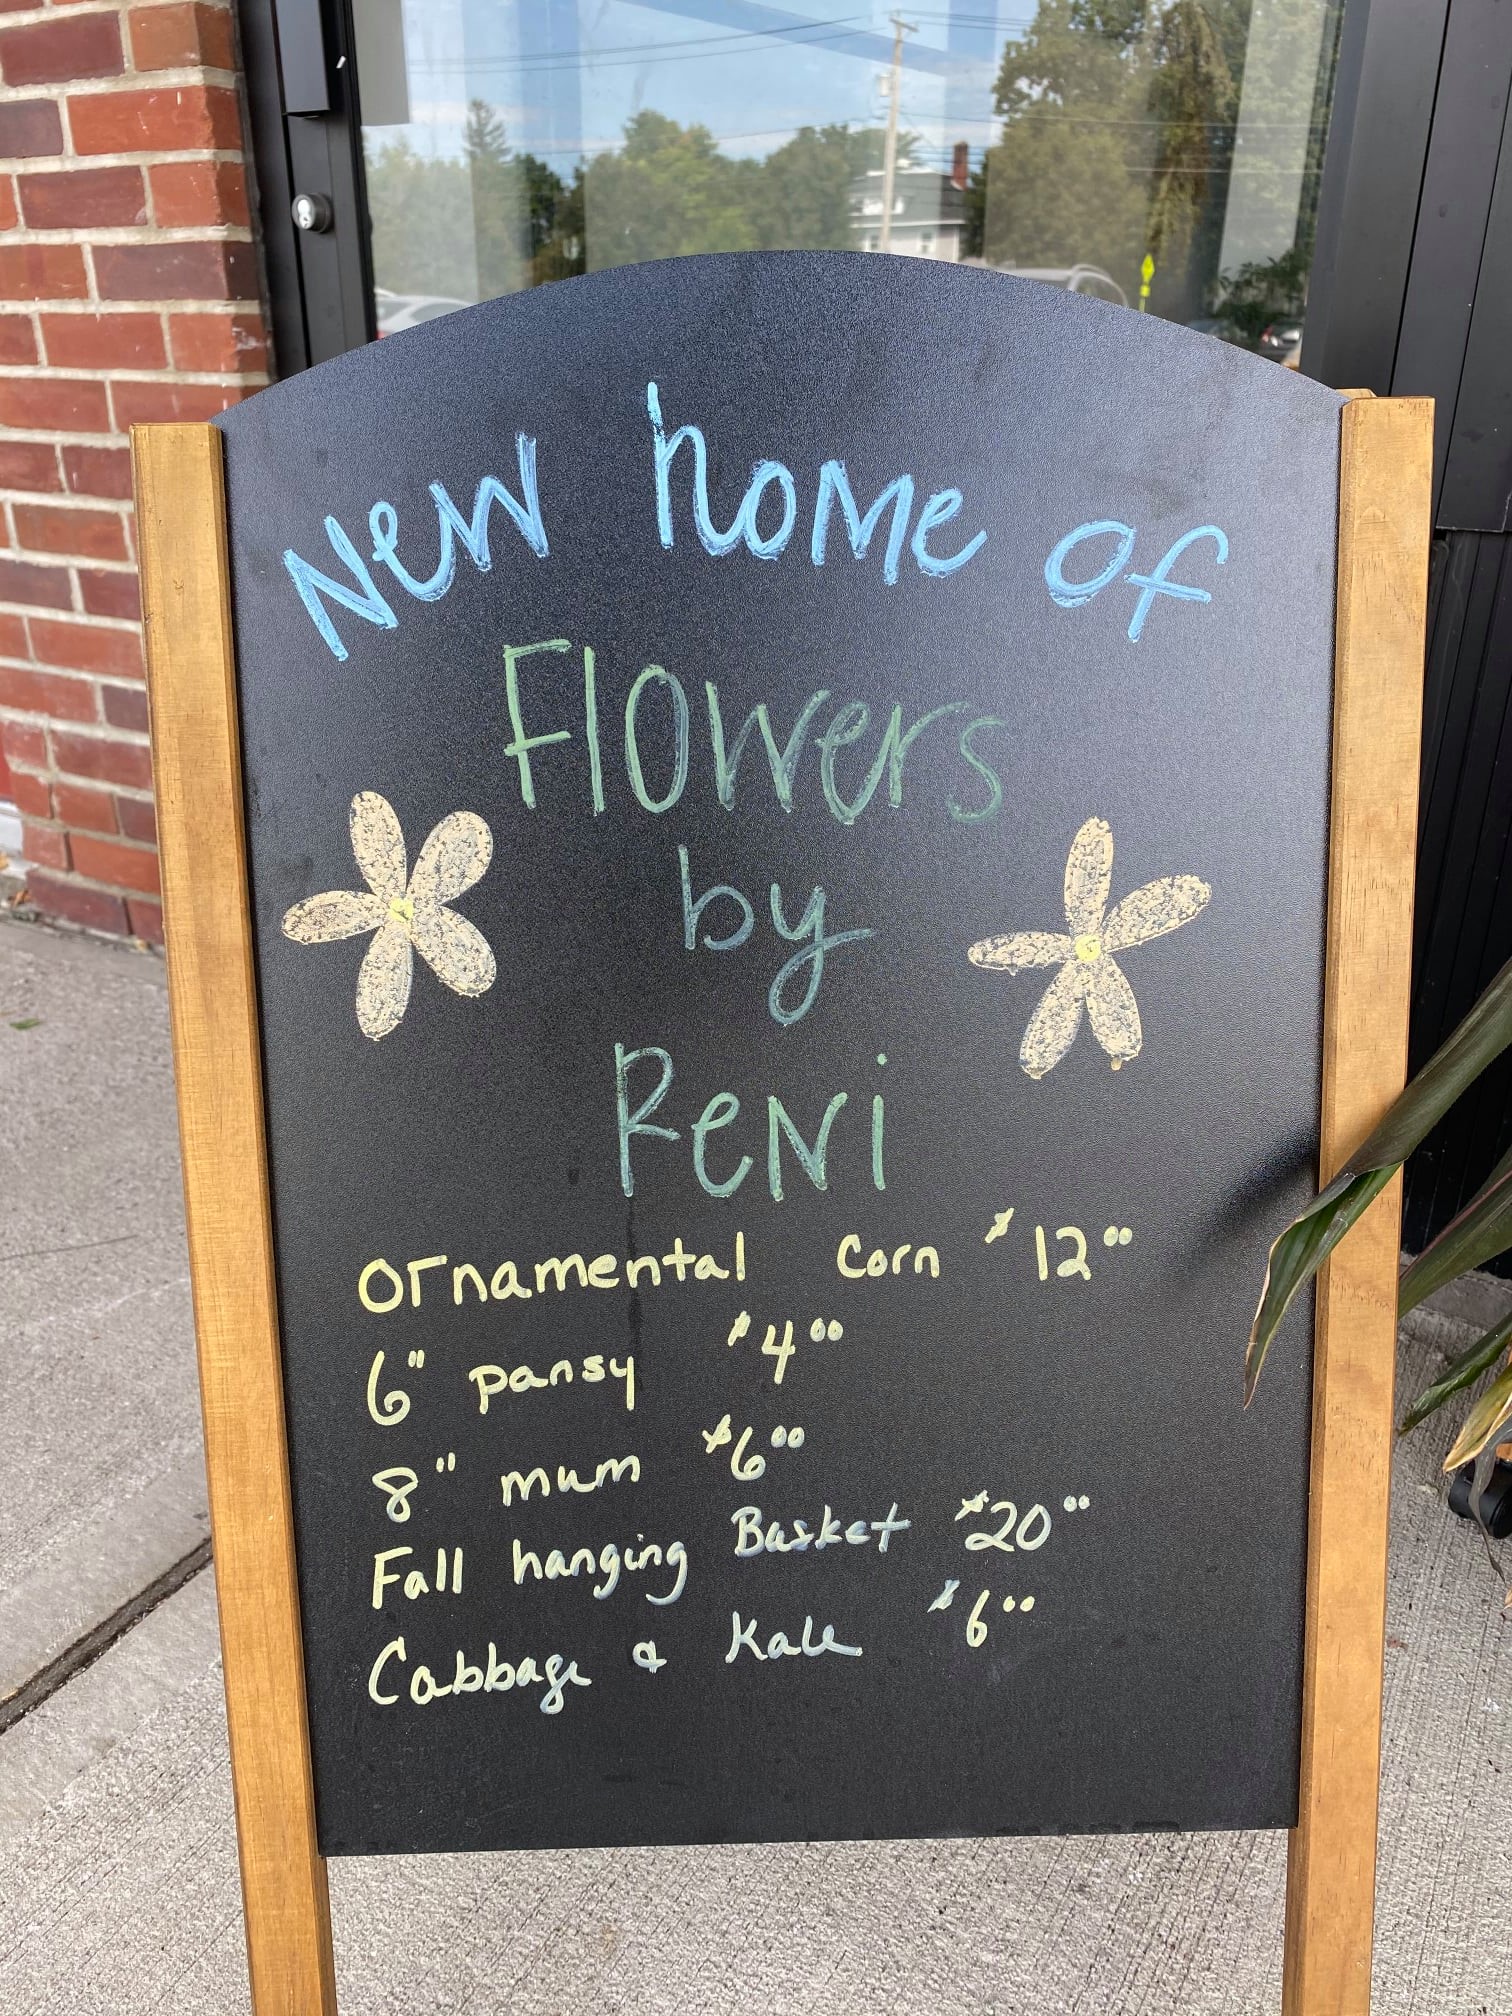 New home of
Flowers
by
Reni
Ornamental Corn $12.00
6" pansy $4.00
8" mum $6.00
Fall hanging Basket $20.00
Cabbage & Kale $6.00